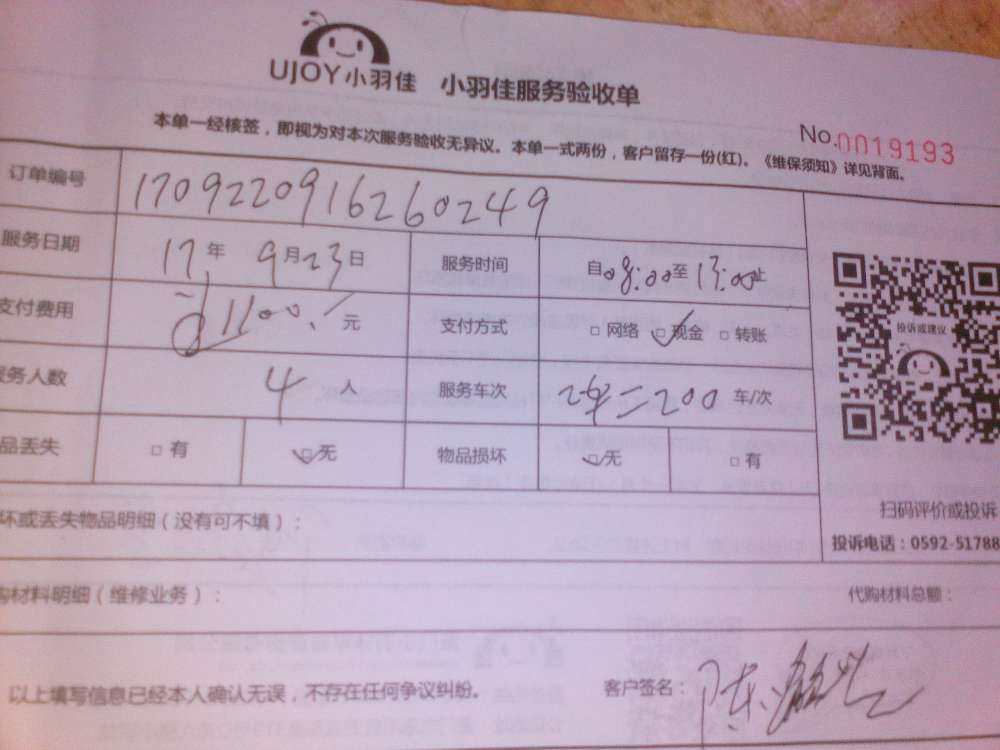 UJOY小羽佳 小羽佳服务验收单
No.0019193
本单一经核签，即视为对本次服务验收无异议。本单一式两份，客户留存一份(红)。《维保须知》详见背面。
订单编号 1709220916260249
服务日期 17年9月23日 服务时间 自08:00至13:00止
支付费用 1100.元 支付方式 □网络 ☑现金 □转账
投诉或建议
服务人数 4人 服务车次 2车=200车/次
品丢失 □有 ☑无 物品损坏 ☑无 □有
扫码评价或投诉
坏或丢失物品明细（没有可不填）：
投诉电话：0592-51788
购材料明细（维修业务）： 代购材料总额：
以上填写信息已经本人确认无误，不存在任何争议纠纷。 客户签名：陈